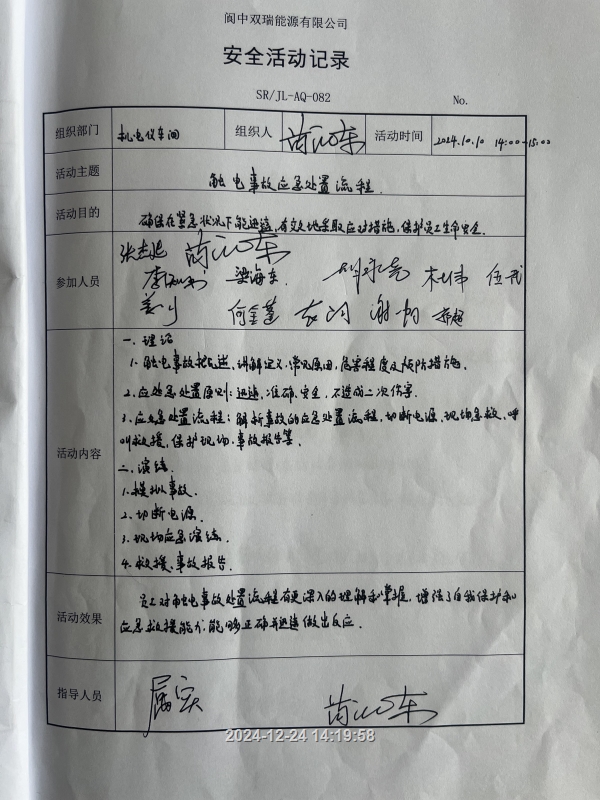 阆中双瑞能源有限公司
安全活动记录
SR/JL-AQ-082 No.
组织部门 机电仪车间 组织人 活动时间 2024.10.10 14:00-15:00
活动主题 触电事故应急处置流程.
活动目的 确保在紧急状况下能迅速,有效地采取应对措施,保护员工生命安全.
参加人员
梁海东
何金蓬 谢明
活动内容
一、理论
1、触电事故概述、讲解定义、常见原因,危害程度及预防措施.
2、应急处置原则:迅速、准确、安全,不造成二次伤害.
3、应急处置流程:解析事故的应急处置流程,切断电源、现场急救、呼
叫救援、保护现场、事故报告等.
二、演练.
1、模拟事故.
2、切断电源.
3、现场应急演练.
4、救援、事故报告.
活动效果
员工对触电事故处置流程有更深入的理解和掌握,增强了自我保护和
应急救援能力,能够正确并迅速做出反应.
指导人员 属实
2024-12-24 14:19:58